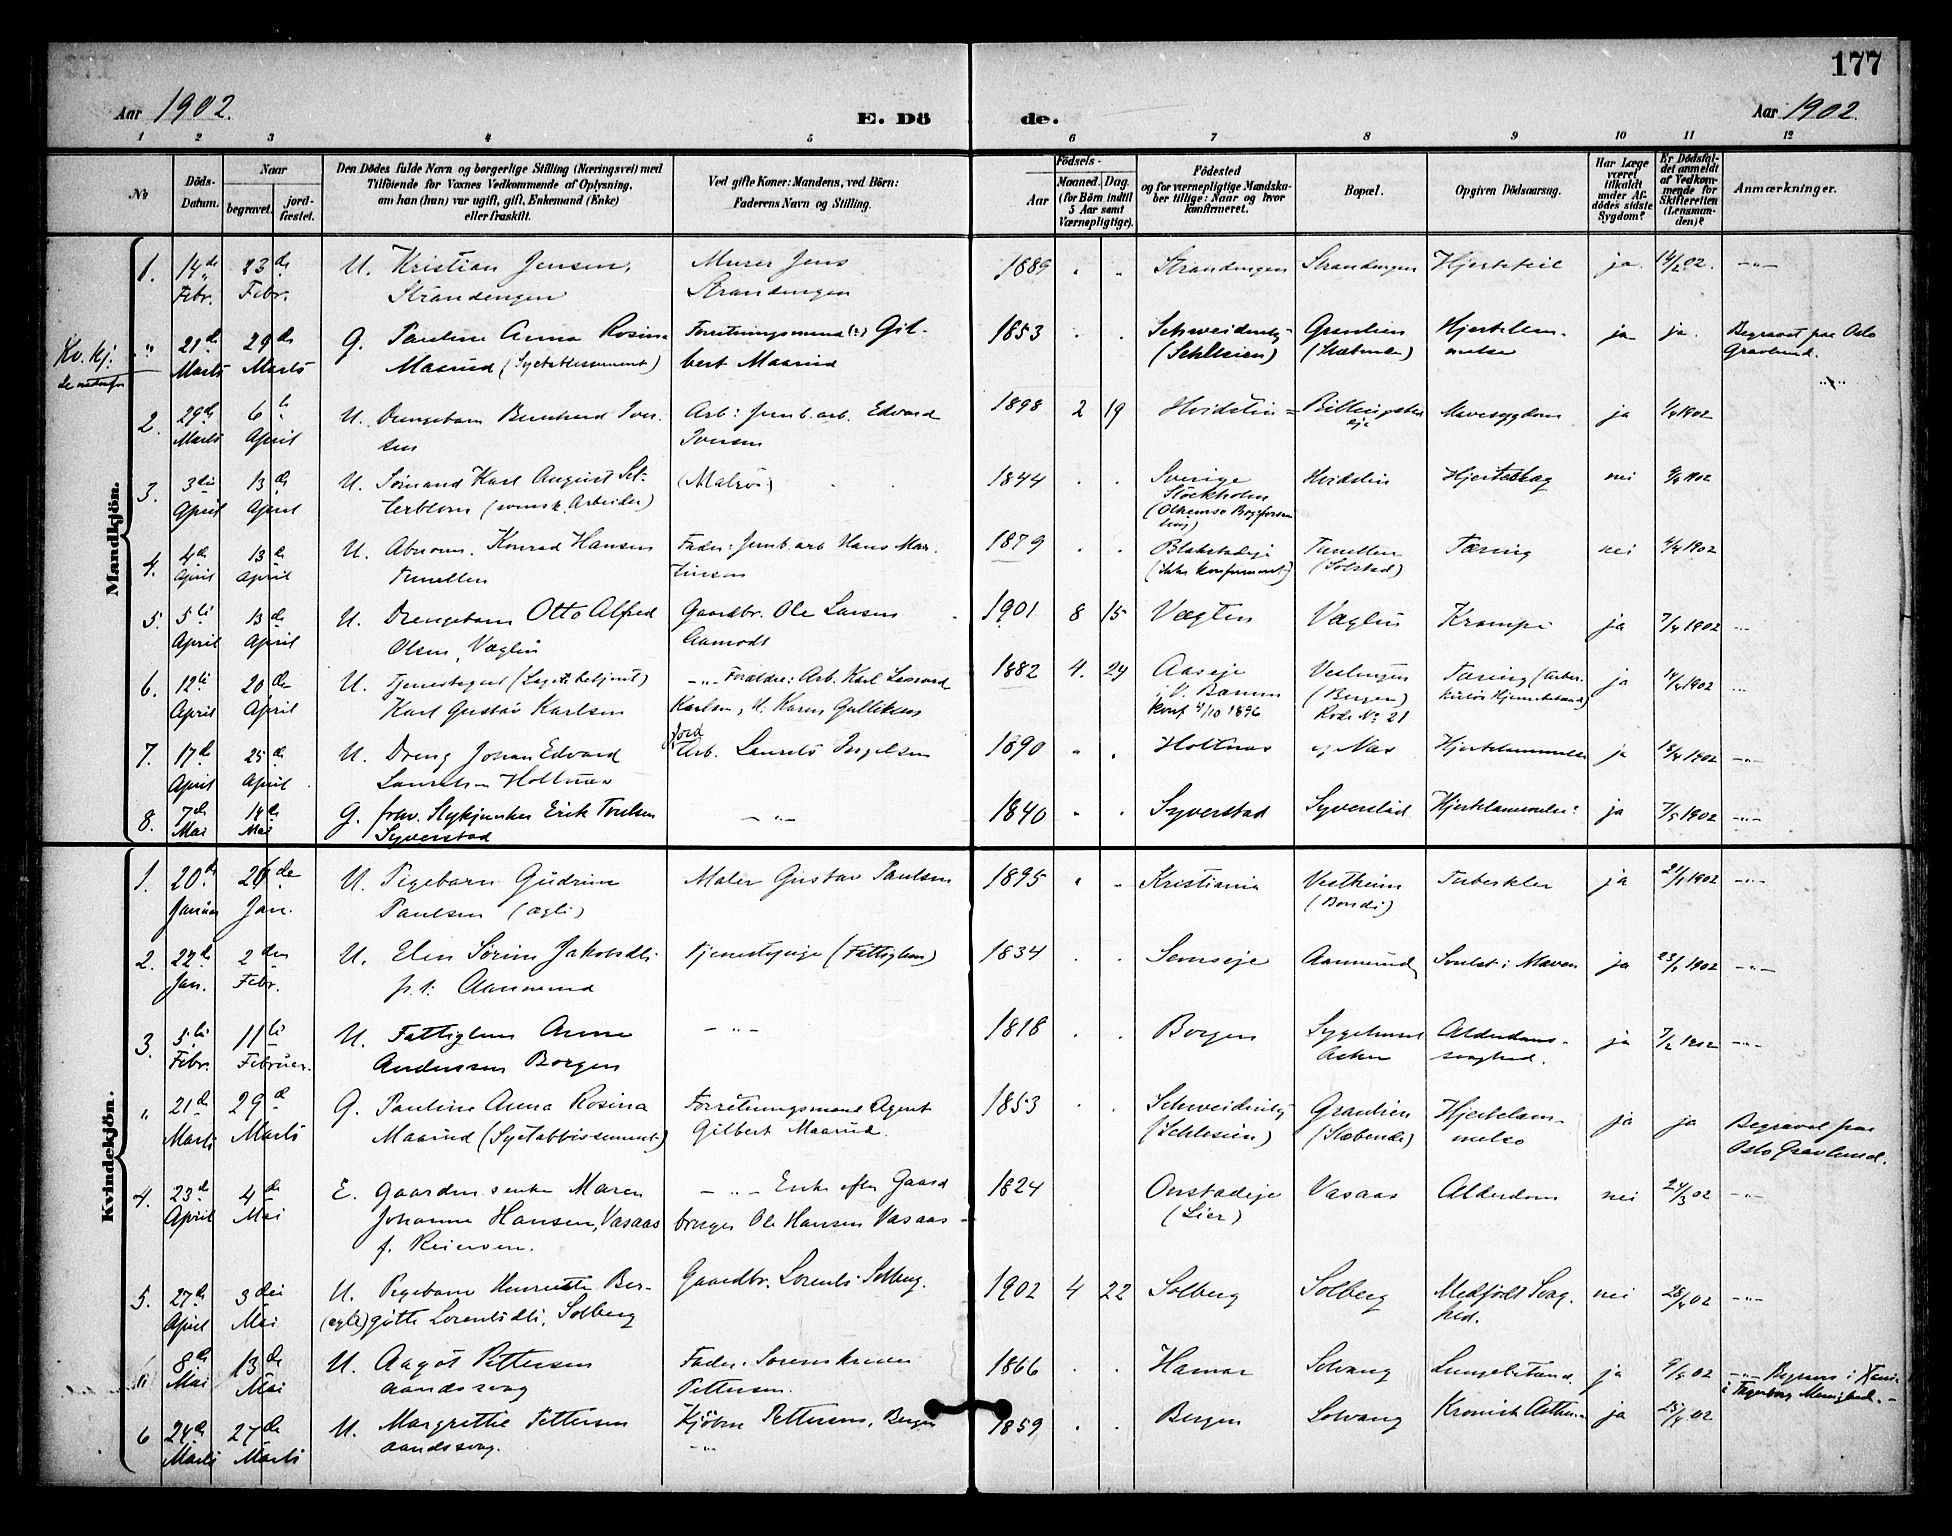 177
Aar 1902.
E. Dö
de.
Aar 1902.
1 2 3 4 5 6 7 8 9 10 11 12
No
Döds-
Datum.
Naar
begravet.
jord-
fæstet.
Den Dödes fulde Navn og borgerlige Stilling (Næringsvei) med
Tilföiende for Voxnes Vedkommende af Oplysning,
om han (hun) var ugift, gift, Enkemand (Enke)
eller fraskilt.
Ved gifte Koner: Mandens, ved Börn:
Faderens Navn og Stilling.
Födsels-
Aar
Maaned. Dag.
(for Börn indtil
5 Aar samt
Værnepligtige).
Födested
og for værnepligtige Mandska-
ber tillige: Naar og hvor
konfirmeret.
Bopæl.
Opgiven Dödsaarsag.
Har Læge
været
tilkaldt
under Af-
dödes sidste
Sygdom?
Er Dödsfal-
det anmeldt
af Vedkom-
mende for
Skifteretten
(Lensman-
den)?
Anmærkninger.
Mandkjön.
1. 14de Febr. 23de Febr. U. Kristian Jensen,
Strandengen
Murer Jens
Strandengen
1889 " " Strandengen Strandengen Hjertefeil ja 14/2 02. -"-
Kv. kj:
" 21de Marts 29de Marts G. Pauline Anna Rosina
Maarud (Syetablissement)
Forretningsmand Gil-
bert Maarud
1853 Schweidnitz
(Schlesien)
Graulien
(Slæbende)
Hjertelam-
melse
ja ja Begravet paa Oslo
Gravlund.
2. 29de Marts 6te April U. Drengebarn Bernhard Iver-
sen
Arb: Jernb. arb. Edvard
Iversen
1898 2 19 Hvidsten Billingstad
eje
Mavesygdom ja 1/4 1902
3. 3die April 13de April U. Sömand Karl August Set-
terblom (svensk Arbeider)
1844 Sverige
Stockholm
Hvidsten Hjerteslag nei 4/4 1902
4. 4de April 13de April U. Konrad Hansen
Tunellen
Fader: Jernb. arb Hans Mar-
tinsen
1879 Blakstadeje
(ikke konfirmeret)
Tunellen
(Solstad)
Tæring nei 4/4 1902
5. 5te April 13de April U. Drengebarn Otto Alfred
Olsen, Væglin
Gaardbr. Ole Larsen
Aamodt
1901 8 15 Væglin Væglin Krampe ja 7/4 1902 -"-
6. 12te April 20de April U.
Karl Gustav Karlsen
-"- Foraldre: Arb. Karl Leonard
Karlsen, H. Karen Gulliksen
1882 4. 24 Aaseje
V. Bærum
konf 4/10 1896
(Bergen)
Rode No 21
Tæring ja 14/4 1902
7. 17de April 25de April U. Dreng Johan Edvard
Lauritsen Holtnæs
Jord
Arb. Laurits Ingelsen
1890 " " Holtnæs Næs Hjertelammelse ja 18/4 1902 -"-
8. 7de Mai 14de Mai G. frav. Stykjunker Erik Poulsen
Syverstad
-"-
1840 " " Syverstad Syverstad Hjertelammelse ja 7/5 1902 -"-
Kvindekjön.
1. 20de Januar 26de Jan. U. Pigebarn Gudrun
Paulsen (ægte)
Maler Gustav Paulsen
1895 " " Kristiania Vestheim
(Bondi)
Tuberkler ja 21/1 1902 -"-
2. 22de Jan. 2den Febr. U. Elen Sörine Jakobsdtr.
p. t. Aamund
Tjenestepige (Fattiglem)
1834 Semseje Aamund Svulst i Maven ja 23/1 1902 -"-
3. 5te Febr. 11te Februar. U. Fattiglem Anne
Andersen Borgen
-"-
1818 Borgen Sygehuset
Asker
Alderdoms-
svaghed.
ja 7/2 1902 -"-
" 21de Marts 29de Marts G. Pauline Anna Rosina
Maarud (Syetablissement)
Forretningsmand Agent
Gilbert Maarud.
1853 Schweidnitz
(Schlesien)
Graulien
(Slæbende)
Hjertelam-
melse
ja ja Begravet paa
Oslo Gravlund.
4. 23de April 4de Mai E. Gaardm. enke Maren
Johanne Hansen, Vasaas
f. Reiersen.
-"- Enke efter Gaard
bruger Ole Hansen Vasaas
1824 Onstadeje
(Lier)
Vasaas Alderdom nei 24/3 02 -"-
5. 27de April 3die Mai U. Pigebarn Henriette Ber-
(ægte) gitte Lorentsdtr, Solberg
Gaardbr. Lorents Solberg.
1902 4 22 Solberg Solberg Medfödt Svag-
hed.
nei 28/4 02 -"-
" 8de Mai 13de Mai U. Aagot Pettersen
aandssvag
Fader: Sorenskriver
Pettersen.
1866 Hamar Solvang Lungebetænd. ja 9/5 02 -"-
6 24de Marts 27de Marts U. Margrethe Pettersen
aandssvag.
Kjöbm. Pettersens, Bergen
-"-
1859 Bergen Solvang Kronisk ja 25/4 02